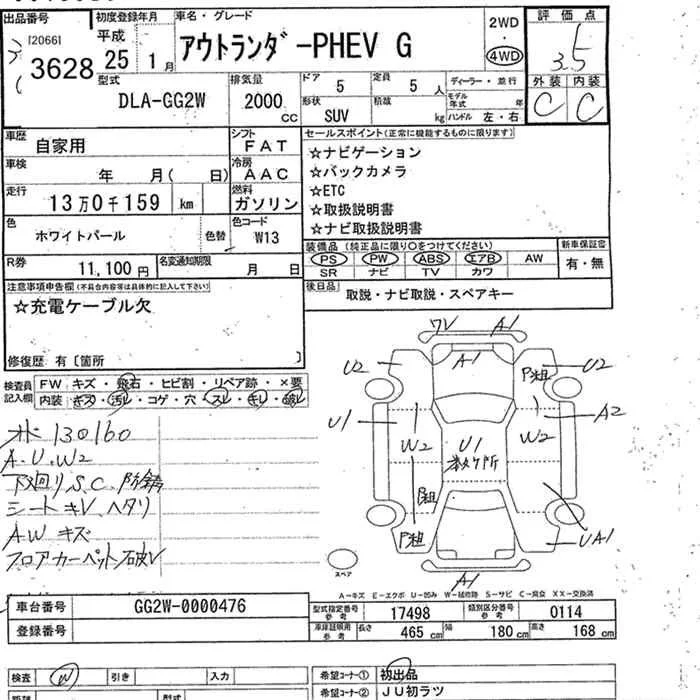 出品番号 初度登録年月 車名・グレード 2WD 評価点
[2066] 平成 アウトランダ゙-PHEV G ・ 3.5
3628 25年 1月 4WD 外装 内装
型式 排気量 ドア 5 定員 5人 ディーラー・並行 C C
DLA-GG2W 2000cc 形状 SUV 積載 kg モデル年式 年
ハンドル 左・右
車歴 自家用 シフト FAT セールスポイント(正常に機能するものに限ります)
車検 年 月( 日) 冷房 AAC ☆ナビゲーション
☆バックカメラ
走行 13万0千159 km 燃料 ガソリン ☆ETC
☆取扱説明書
色 ホワイトパール 色替 色コード W13 ☆ナビ取扱説明書
装備品(純正品に限り○をつけてください) 新車保証書
R券 11,100円 名変通知期限 月 日 PS PW ABS エアB AW 有・無
SR ナビ TV カワ
注意事項申告欄(不具合内容等は具体的に記入して下さい) 後日品 取説・ナビ取説・スペアキー
☆充電ケーブル欠
修復歴 有〔箇所 〕
検査員記入欄 FW キズ・飛石・ヒビ割・リペア跡・×要
内装 キズ・汚レ・コゲ・穴・スレ・キレ・破レ
130160
A.U.W2
下廻りS.C.防錆
シートキV.ヘタリ
AWキズ
フロアカーペット破V
ワV A1
A1
U2 P粗 U2
U1 W2 U1 W2 A2
数ケ所
P粗
P粗 UA1
A1
スペア
A-キズ E-エクボ U-凹み W-補修跡 S-サビ C-腐食 XX-交換済
車台番号 GG2W-0000476 型式指定番号参考 17498 類別区分番号参考 0114
登録番号 車庫証明用参考 長さ 465cm 幅 180cm 高さ 168cm
検査 W 引き 入力 希望コーナー① 初出品
型式 希望コーナー② JU初ラツ